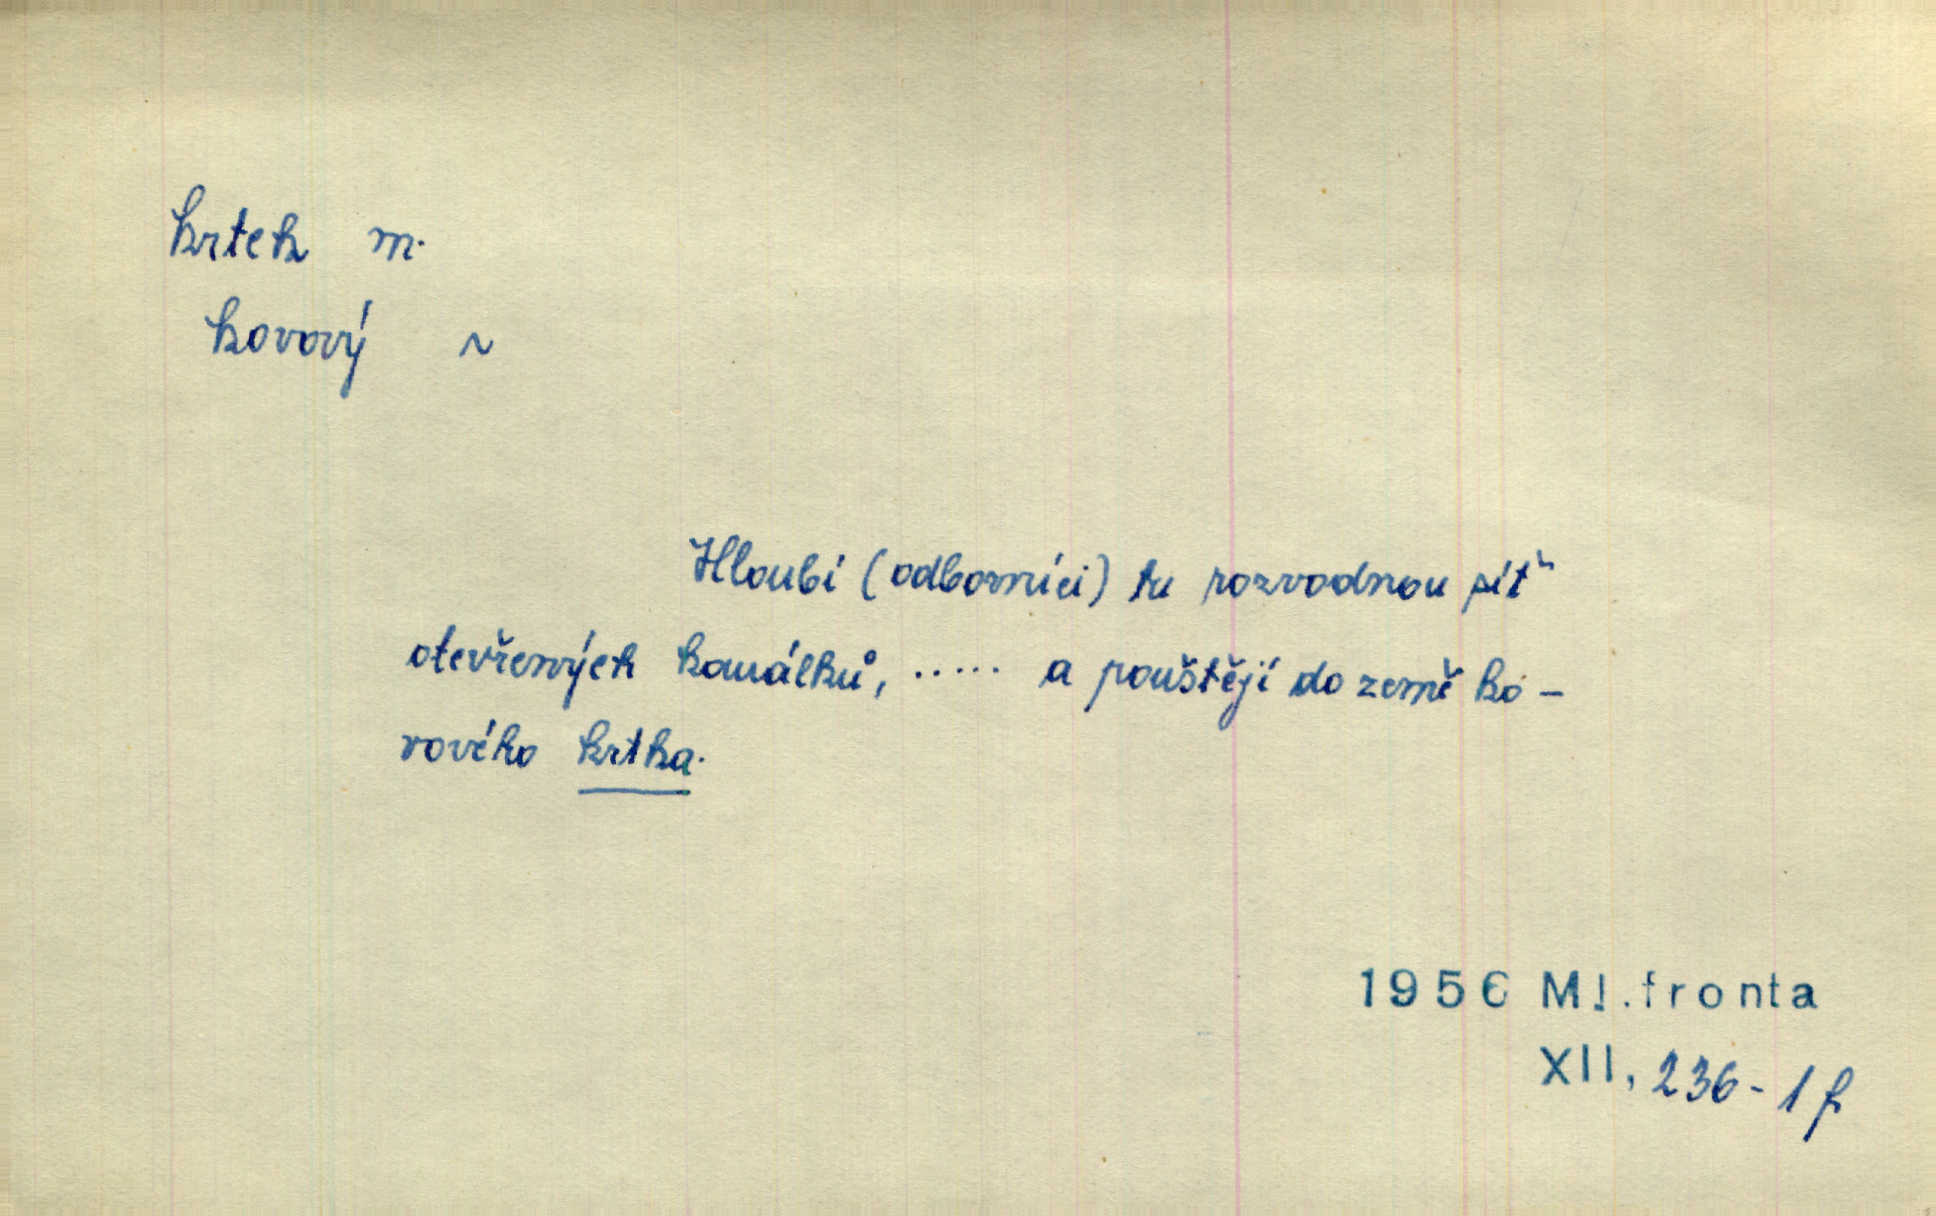 krtek m.
kovový ~
Hloubí (odborníci) tu rozvodnou síť
otevřených kanálků, ..... a pouštějí do země ko-
vového krtka.
1956 Ml.fronta
XII, 236-1f